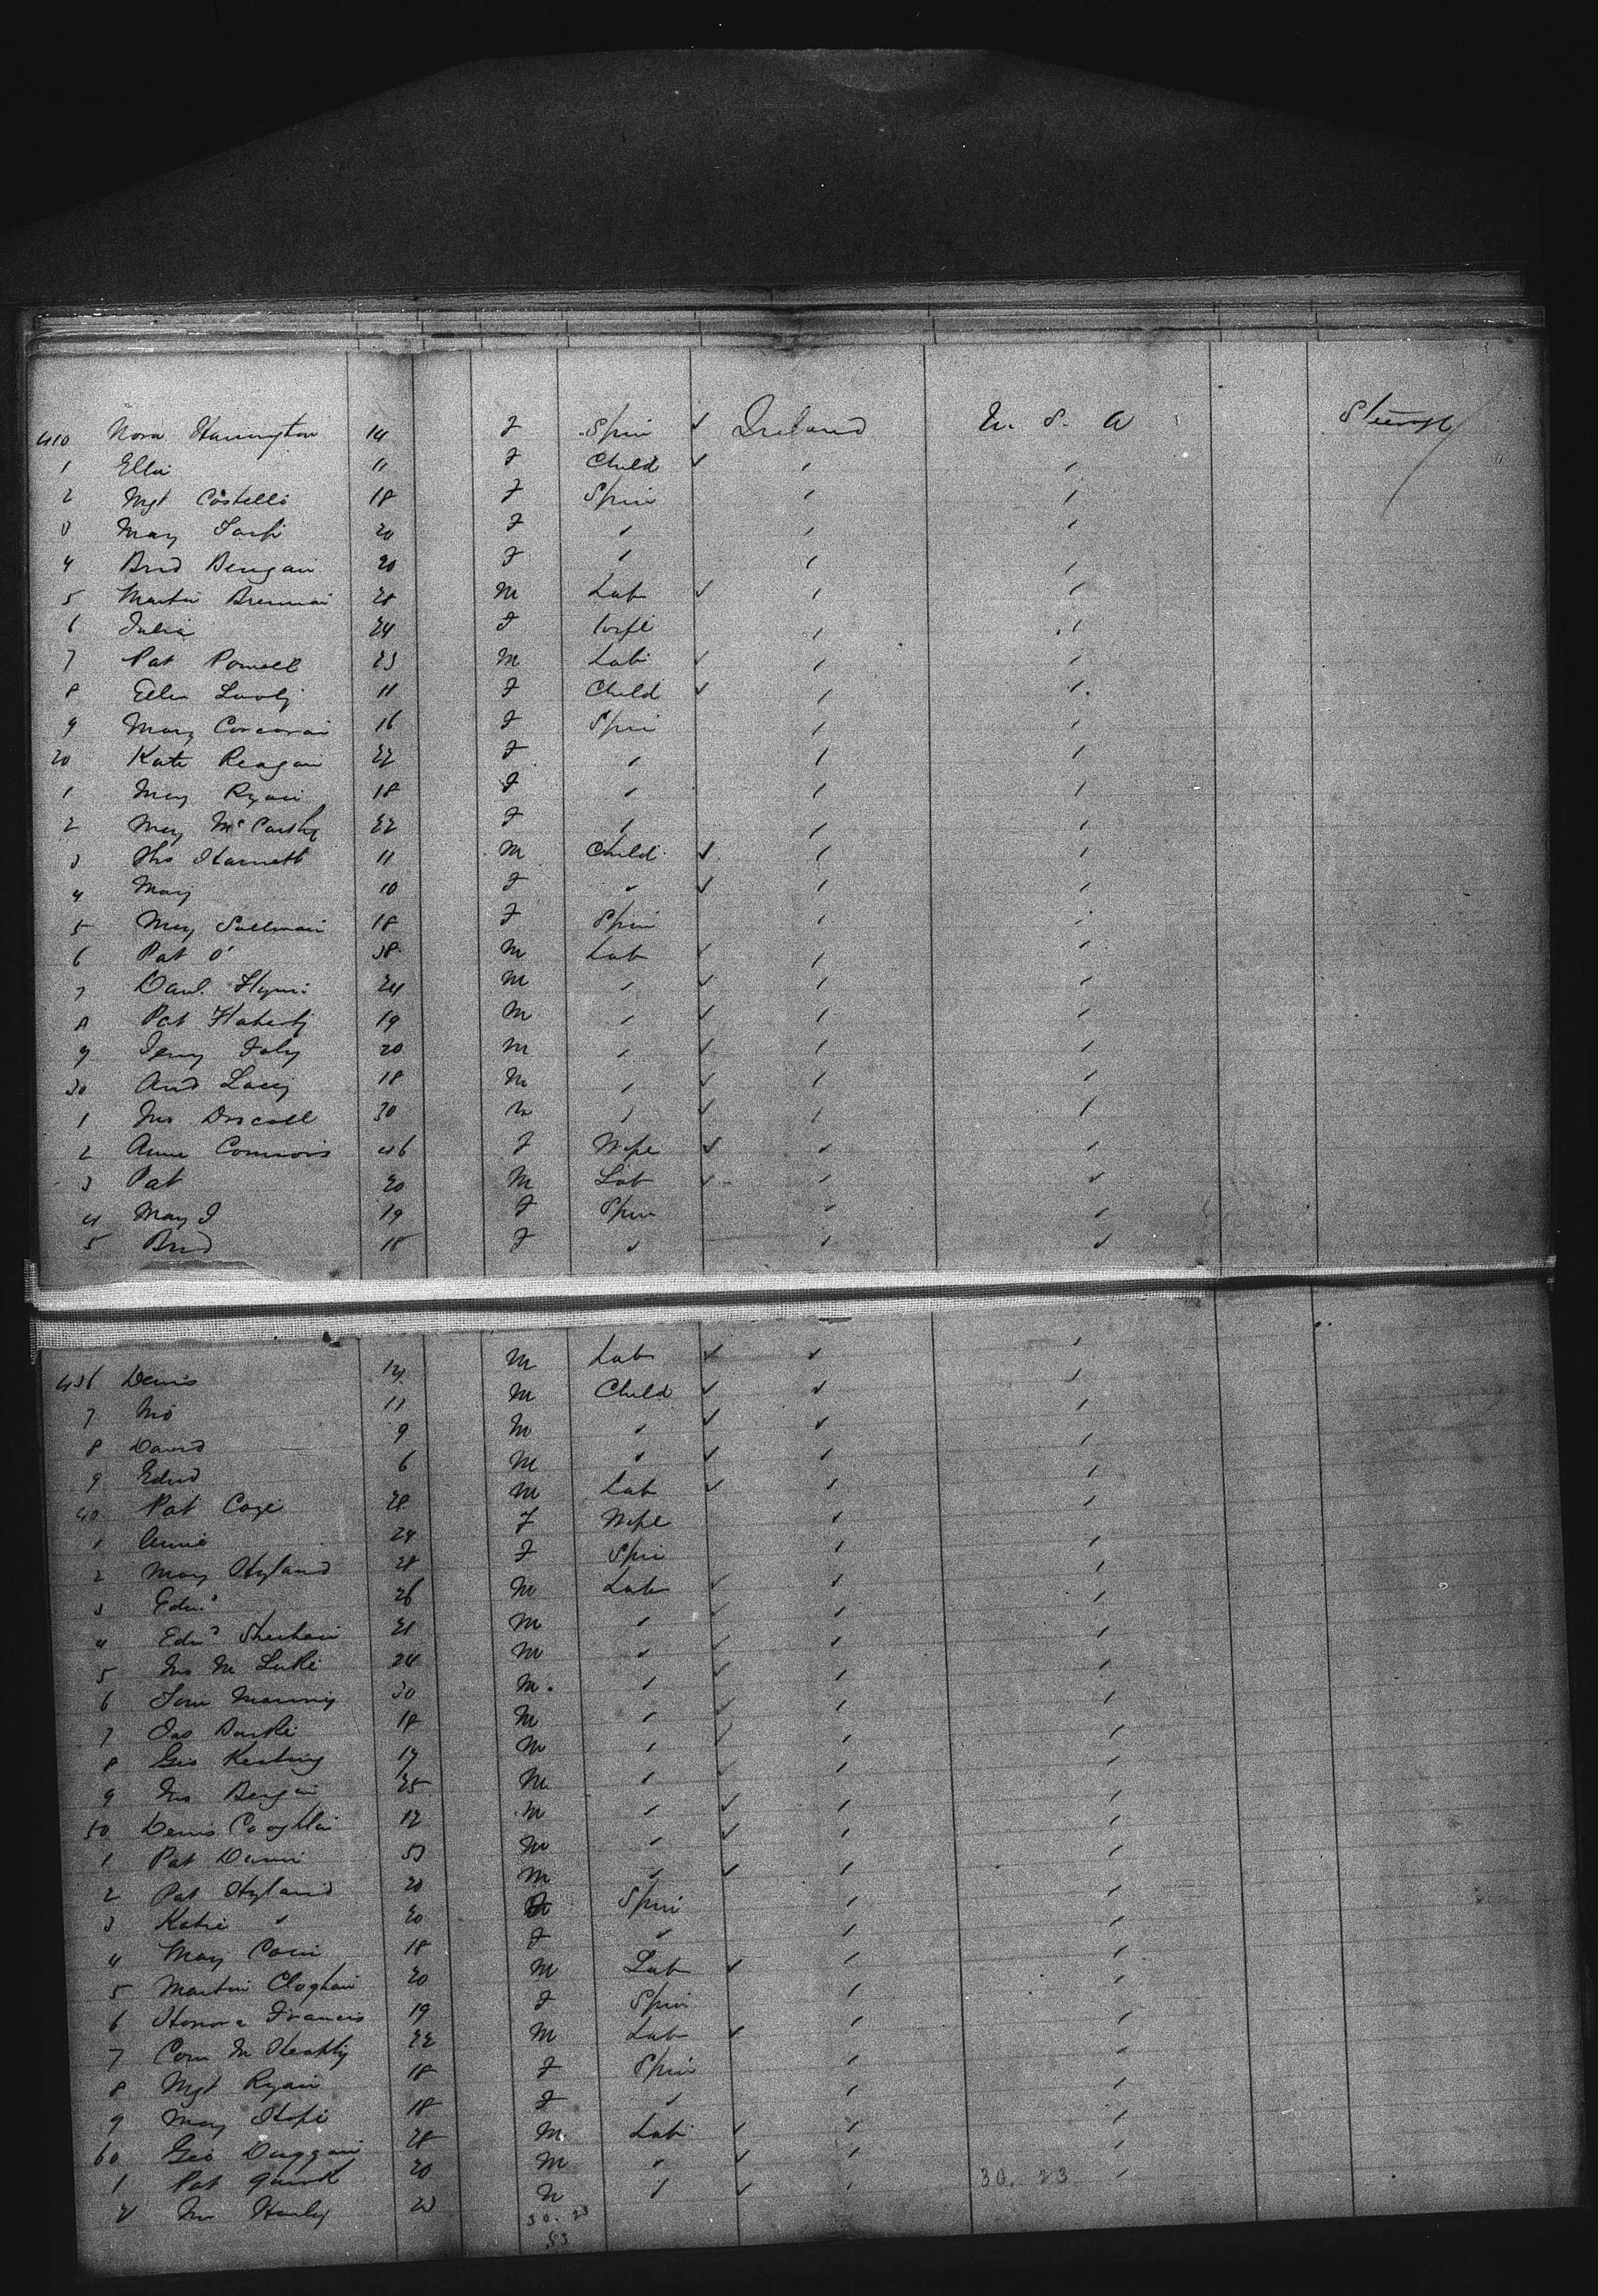 410 Nora Harrington 14 F Spin ✓ Ireland U. S. A Steerage
1 Ellen 11 F Child ✓ " "
2 Mgt Costello 18 F Spin " "
3 Mary 20 F " " "
4 Brid 20 F " " "
5 Martin Brennan 28 M Lab ✓ " "
6 Julia 24 F Wife " "
7 Pat Powell 23 M Lab ✓ " "
8 Ellen 11 F Child ✓ " "
9 Mary Corcoran 16 F Spin " "
20 Kate Reagan 22 F " " "
1 Mary Ryan 18 F " " "
2 Mary McCarthy 22 F " " "
3 Ths Harnett 11 M Child ✓ " "
4 Mary 10 F " ✓ " "
5 Mary Sullivan 18 F Spin " "
6 Pat O' 38 M Lab ✓ " "
7 Danl. Flynn 24 M " ✓ " "
8 Pat Flaherty 19 M " ✓ " "
9 Jerry Foley 20 M " ✓ " "
30 And Lacey 18 M " ✓ " "
1 Jno Driscoll 30 M " ✓ " "
2 Anne Connors 46 F Wife ✓ " "
3 Pat 20 M Lab ✓ " "
4 Mary J 19 F Spin " "
5 Brid 18 F " " "
436 Denis 14 M Lab ✓ " "
7 Jno 11 M Child ✓ " "
8 David 9 M " ✓ " "
9 Edwd 6 M " ✓ " "
40 Pat 28 M Lab ✓ " "
1 Annie 24 F Wife " "
2 Mary Hyland 28 F Spin " "
3 Edwd 26 M Lab ✓ " "
4 Edwd Sheehan 21 M " ✓ " "
5 Jno 24 M " ✓ " "
6 Tom Manning 30 M " ✓ " "
7 Jas Burke 18 M " ✓ " "
8 Geo Keating 19 M " ✓ " "
9 Jno Bergin 25 M " ✓ " "
50 Denis Coughlan 12 M " ✓ " "
1 Pat Dunn 53 M " ✓ " "
2 Pat Hyland 20 M " ✓ " "
3 Katie " 20 F Spin " "
4 Mary 18 F " " "
5 Martin Cloghan 20 M Lab ✓ " "
6 Honora Francis 19 F Spin " "
7 Corn 22 M Lab ✓ " "
8 Mgt Ryan 18 F Spin " "
9 Mary 18 F " " "
60 Geo Duggan 28 M Lab ✓ " "
1 Pat 20 M " ✓ " "
2 Jno Hanley M " ✓ " "
30. 23
30. 23
53